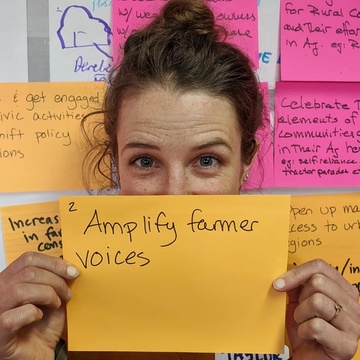 w/ we
owners
Develo
for Rural C
and their effor
in Ag. eg: R
& get engaged
ivic activities
hift policy
ions
Celebrate
elements of
communities
in Their Ag he
eg: self-reliance
tractor parades et
Increas
in fa
cons
2
Amplify farmer
voices
pen up ma
ccess to ur
egions
y/in
TAYLOR